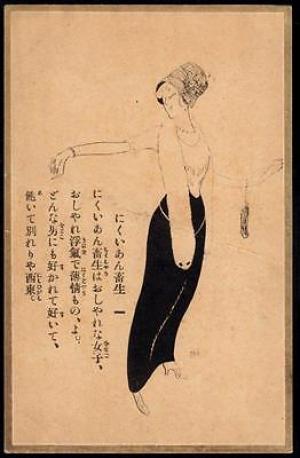 にくいあん畜生 一
にくいあん畜生はおしやれな女子、
おしやれ浮氣で薄情もの、よ。
どんな男にも好かれて好いて、
飽いて別れりや西東。